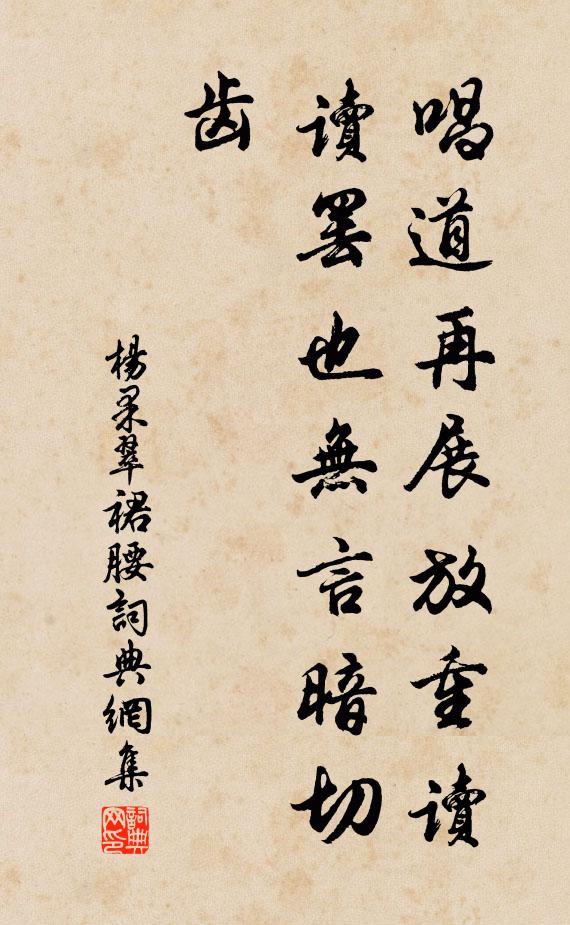 唱道再展放重讀
讀罷也無言暗切
齿
楊果翠裙腰詞典網集
詞典网印